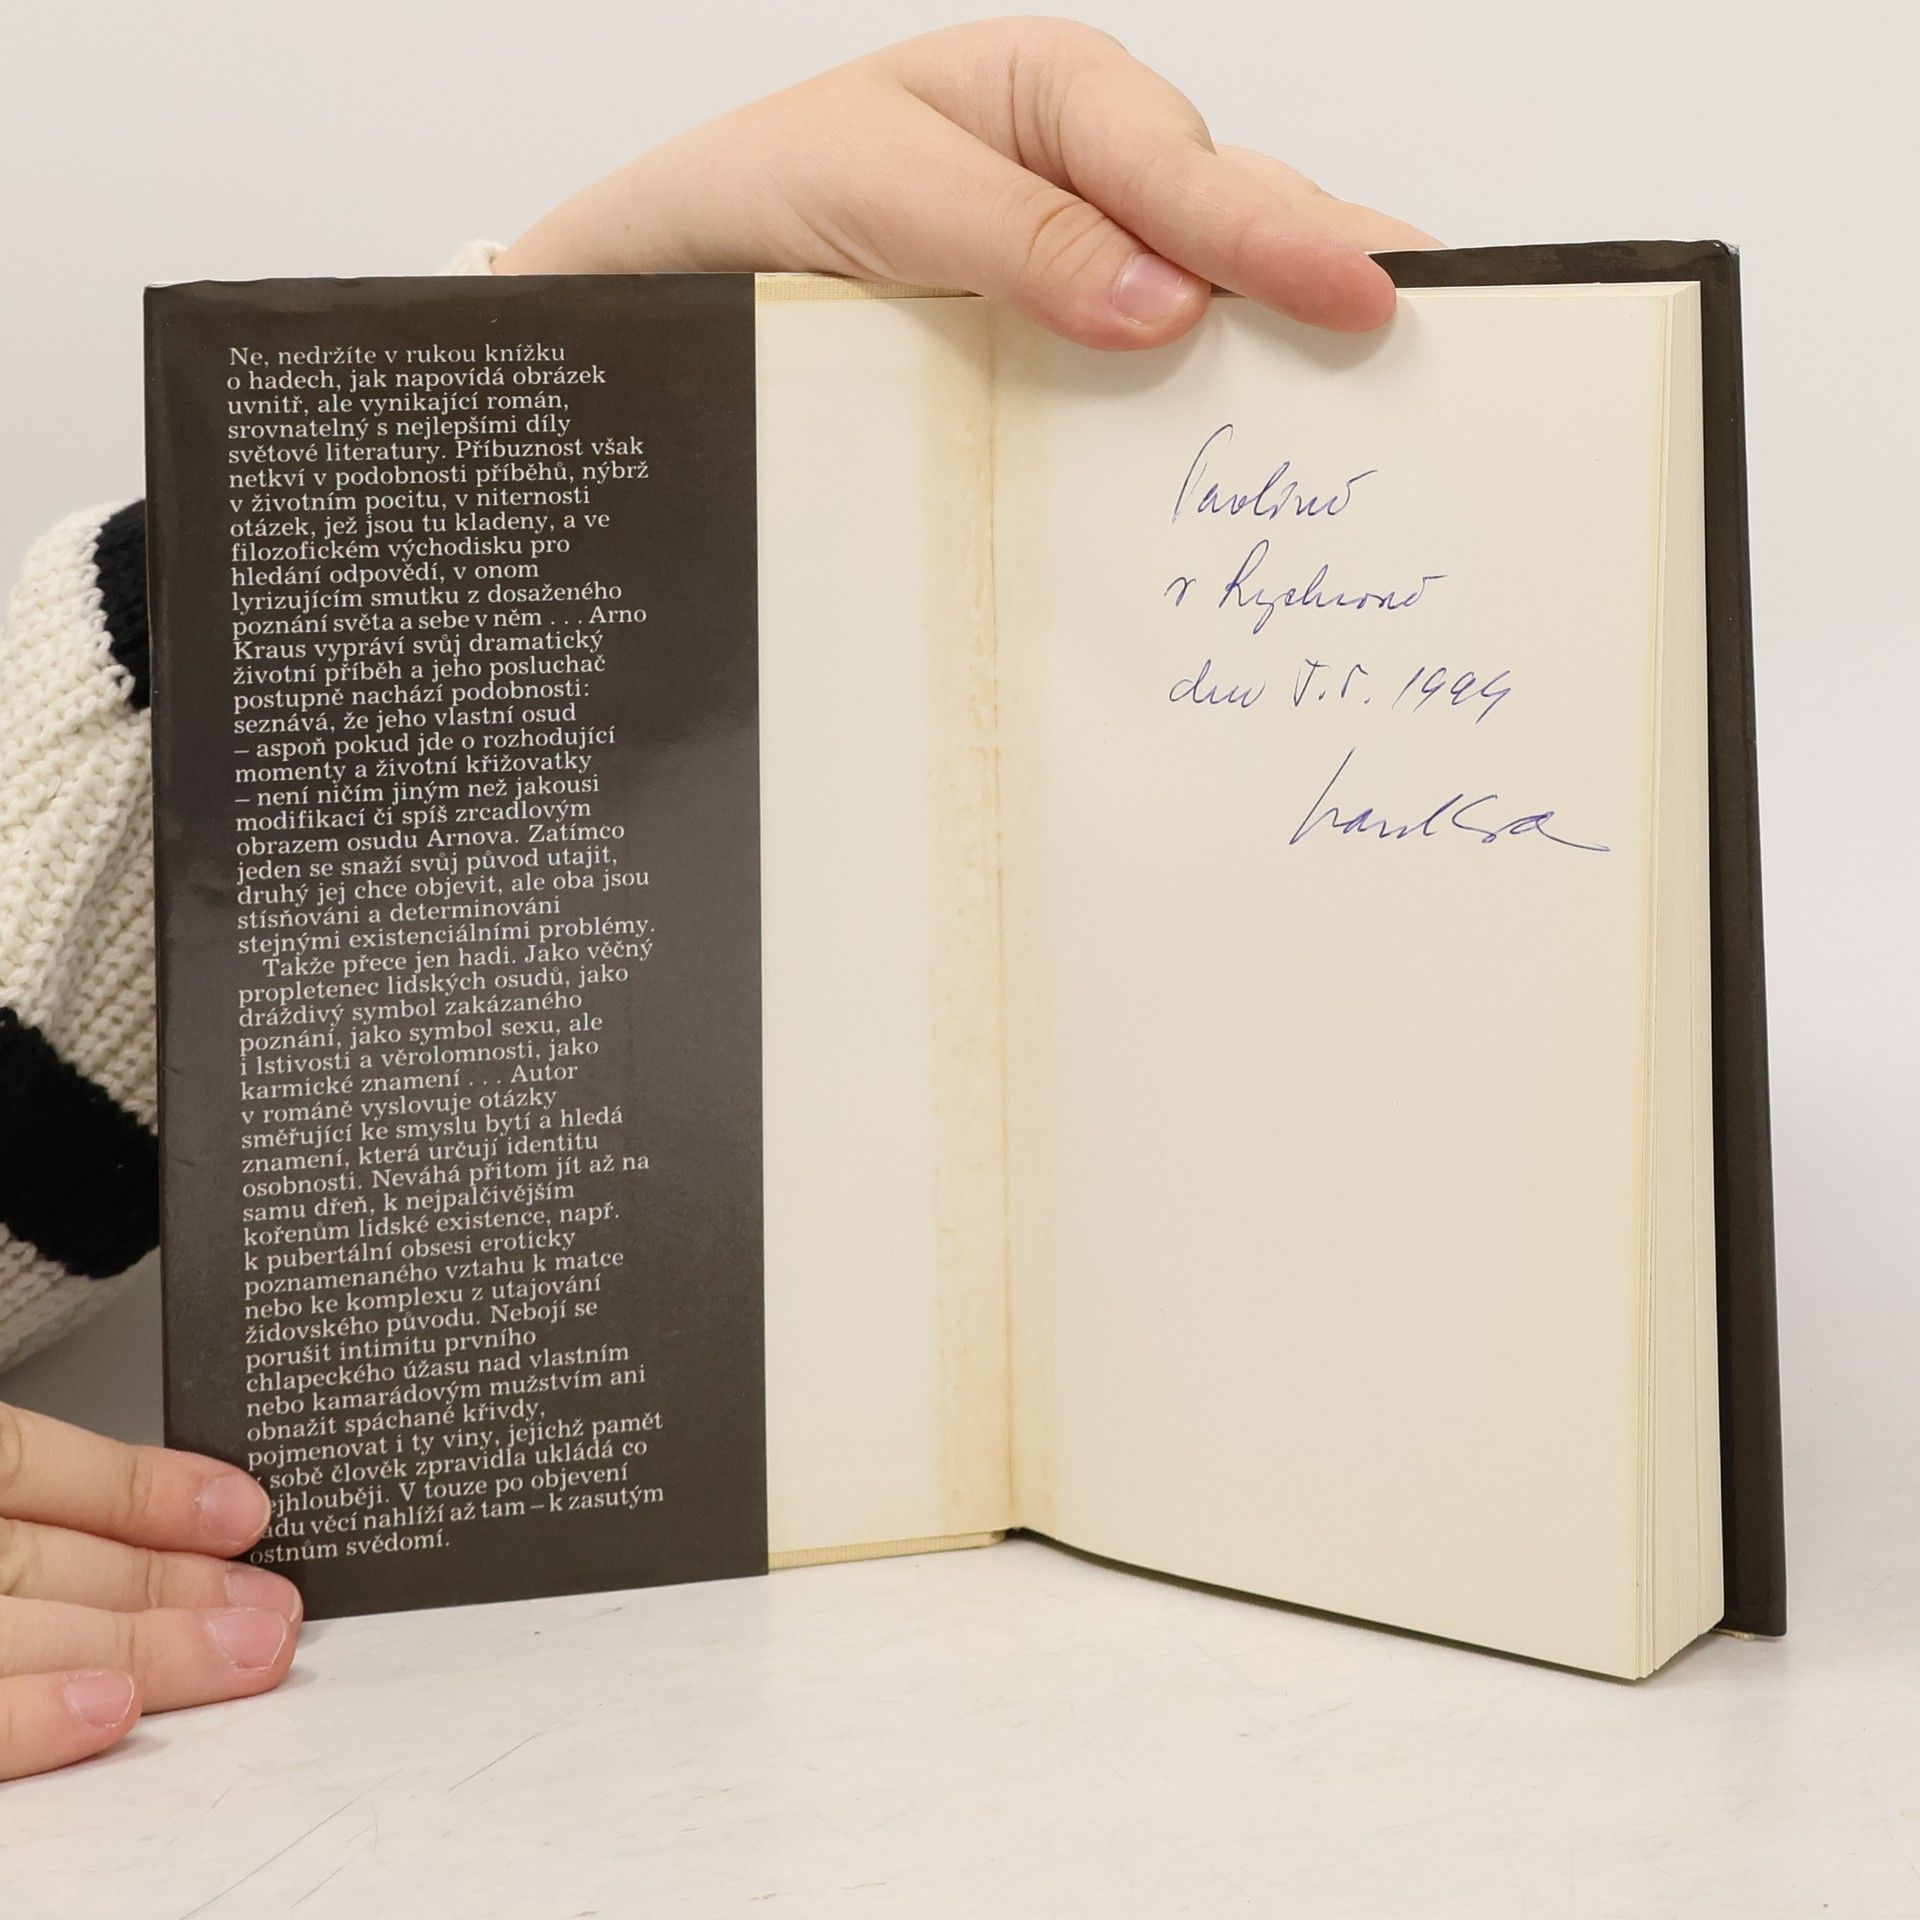 Ne, nedržíte v rukou knížku
o hadech, jak napovídá obrázek
uvnitř, ale vynikající román,
srovnatelný s nejlepšími díly
světové literatury. Příbuznost však
netkví v podobnosti příběhů, nýbrž
v životním pocitu, v niternosti
otázek, jež jsou tu kladeny, a ve
filozofickém východisku pro
hledání odpovědí, v onom
lyrizujícím smutku z dosaženého
poznání světa a sebe v něm . . . Arno
Kraus vypráví svůj dramatický
životní příběh a jeho posluchač
postupně nachází podobnosti:
seznává, že jeho vlastní osud
– aspoň pokud jde o rozhodující
momenty a životní křižovatky
– není ničím jiným než jakousi
modifikací či spíš zrcadlovým
obrazem osudu Arnova. Zatímco
jeden se snaží svůj původ utajit,
druhý jej chce objevit, ale oba jsou
stísňováni a determinováni
stejnými existenciálními problémy.
Takže přece jen hadi. Jako věčný
propletenec lidských osudů, jako
dráždivý symbol zakázaného
poznání, jako symbol sexu, ale
i lstivosti a věrolomnosti, jako
karmické znamení . . . Autor
v románě vyslovuje otázky
směřující ke smyslu bytí a hledá
znamení, která určují identitu
osobnosti. Neváhá přitom jít až na
samu dřeň, k nejpalčivějším
kořenům lidské existence, např.
k pubertální obsesi eroticky
poznamenaného vztahu k matce
nebo ke komplexu z utajování
židovského původu. Nebojí se
porušit intimitu prvního
chlapeckého úžasu nad vlastním
nebo kamarádovým mužstvím ani
obnažit spáchané křivdy,
pojmenovat i ty viny, jejichž pamět
sobě člověk zpravidla ukládá co
ejhlouběji. V touze po objevení
ádu věcí nahlíží až tam – k zasutým
ostnům svědomí.
Pavlíně
v Rychnově
dne 5.5. 1994